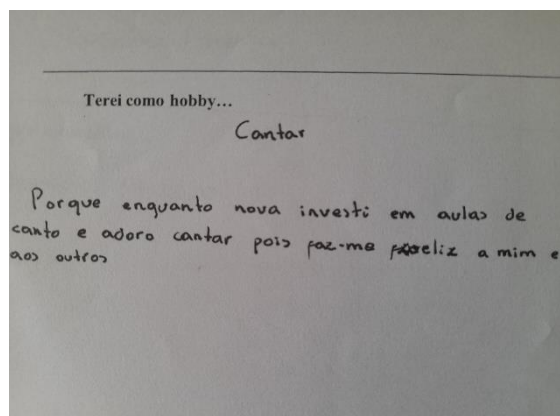 Terei como hobby...
Cantar
Porque enquanto nova investi em aulas de
canto e adoro cantar pois faz-me feliz a mim e
aos outros